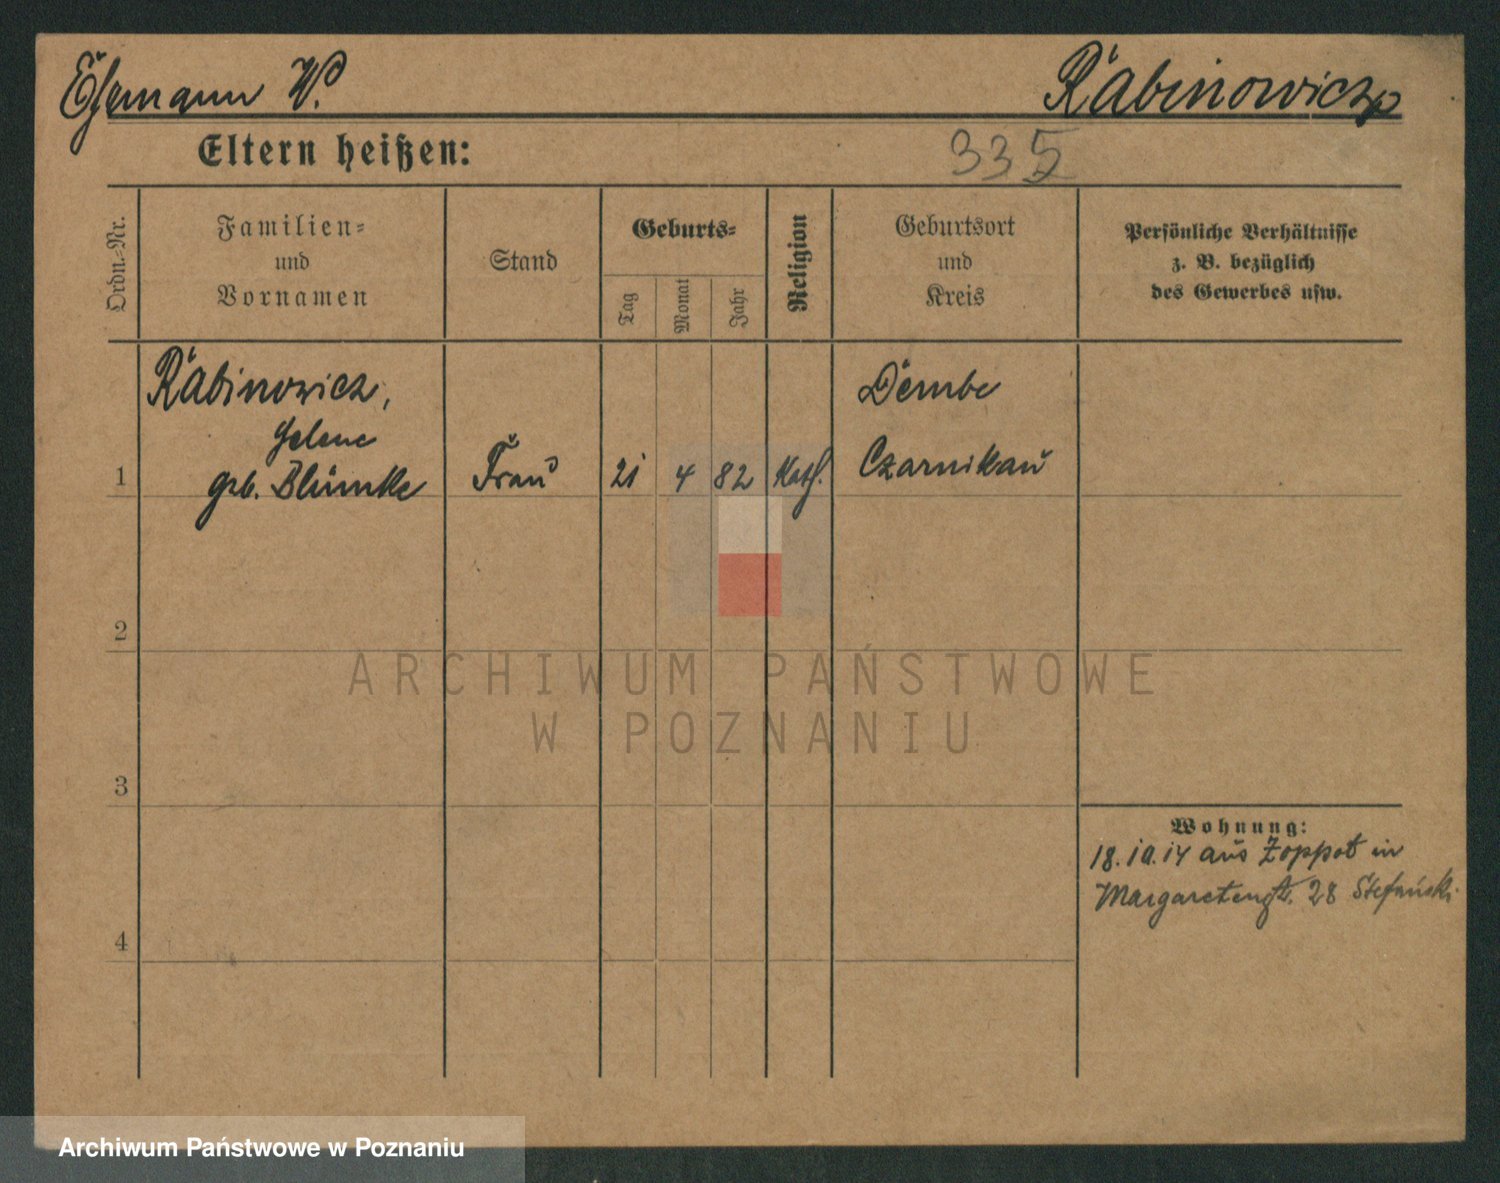 Ehemann W.
Rabinowicz
Eltern heißen:
335
Ordn.-Nr.
Familien-
und
Vornamen
Stand
Geburts-
Tag
Monat
Jahr
Religion
Geburtsort
und
Kreis
Persönliche Verhältnisse
z. B. bezüglich
des Gewerbes usw.
Rabinowicz,
Helene
1 geb. Blümke Frau 21 4 82 Kath.
Dembe
Czarnikau
2
3
4
Wohnung:
18.10.14 aus Zoppot in
Margaretengt. 28 Stefański
ARCHIWUM PAŃSTWOWE
W POZNANIU
Archiwum Państwowe w Poznaniu